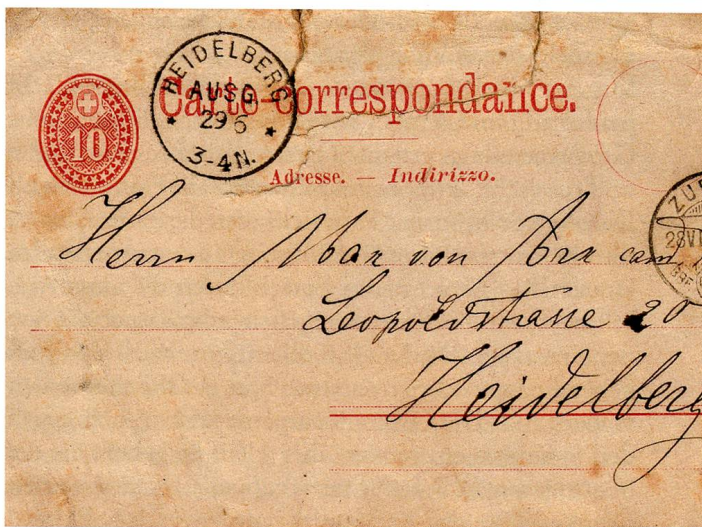 HEIDELBERG
AUSG.
29 6
3-4N.
10
Carte-correspondance.
Adresse. — Indirizzo.
ZUR
28 VI
BRF.
Herrn Max von Arx cam.
Leopoldstrasse 20
Heidelberg